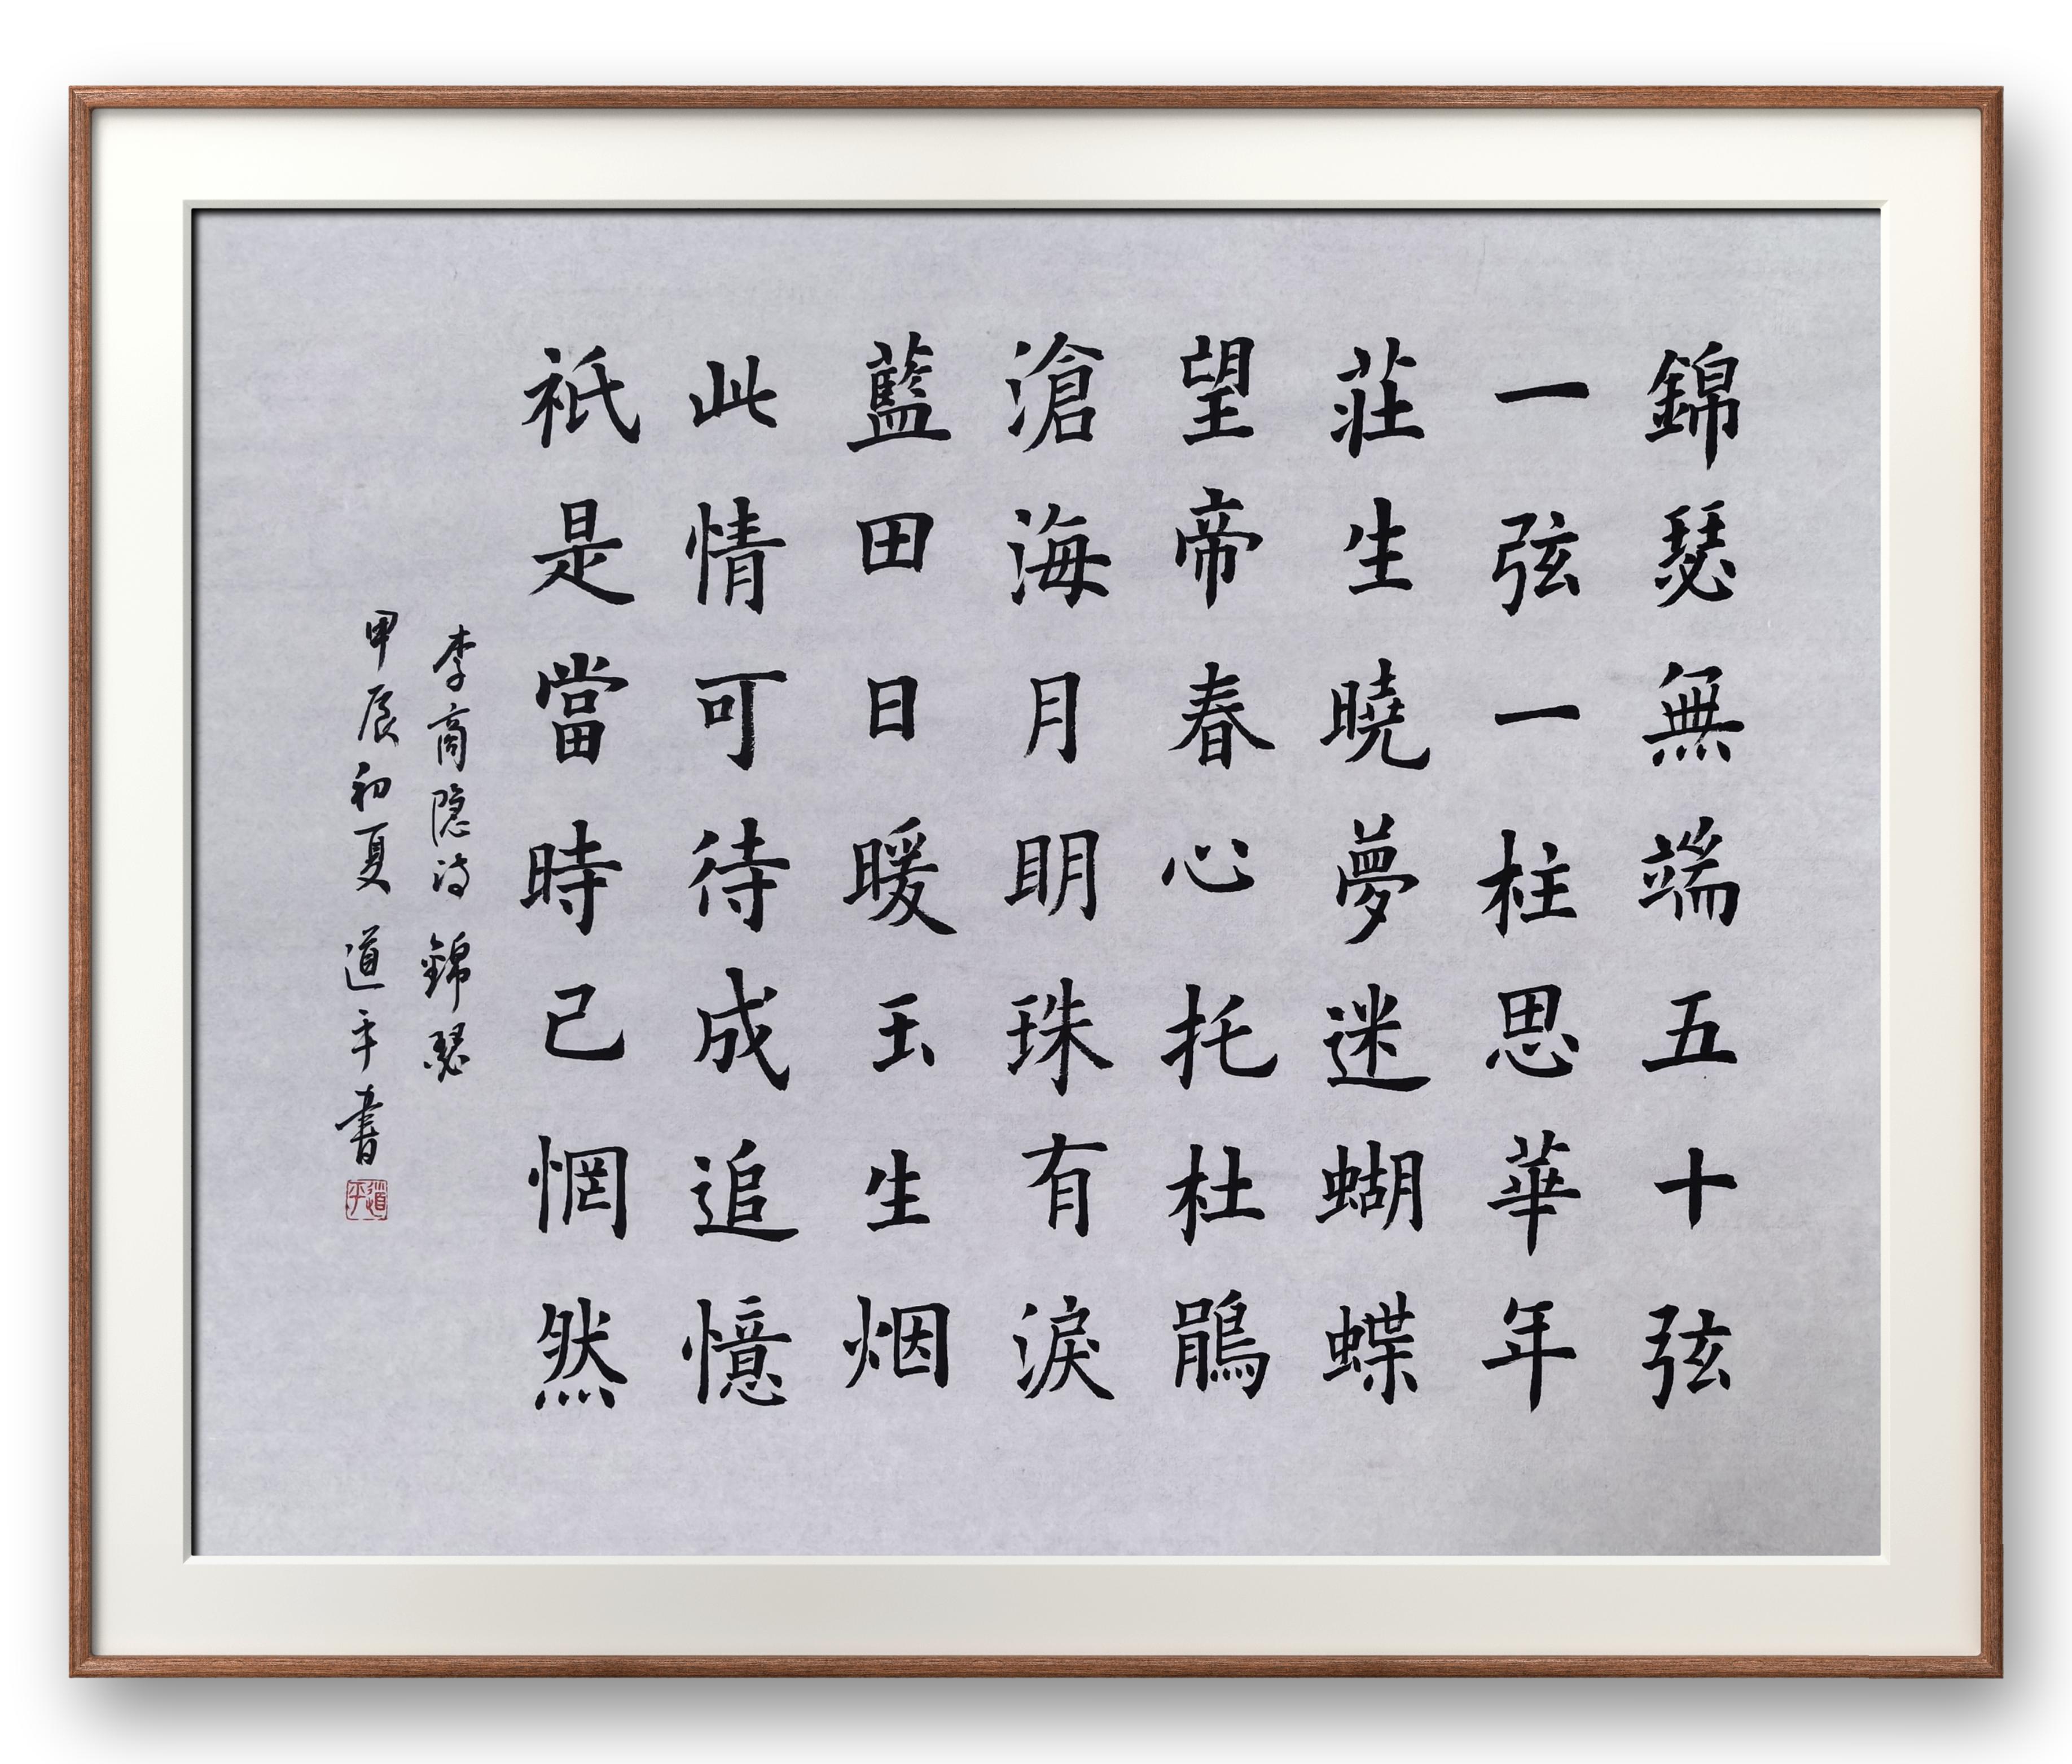 錦瑟無端五十弦
一弦一柱思華年
莊生曉夢迷蝴蝶
望帝春心托杜鵑
滄海月明珠有淚
藍田日暖玉生烟
此情可待成追憶
祇是當時已惘然
李商隐诗 錦瑟
甲辰初夏 道平書
道平